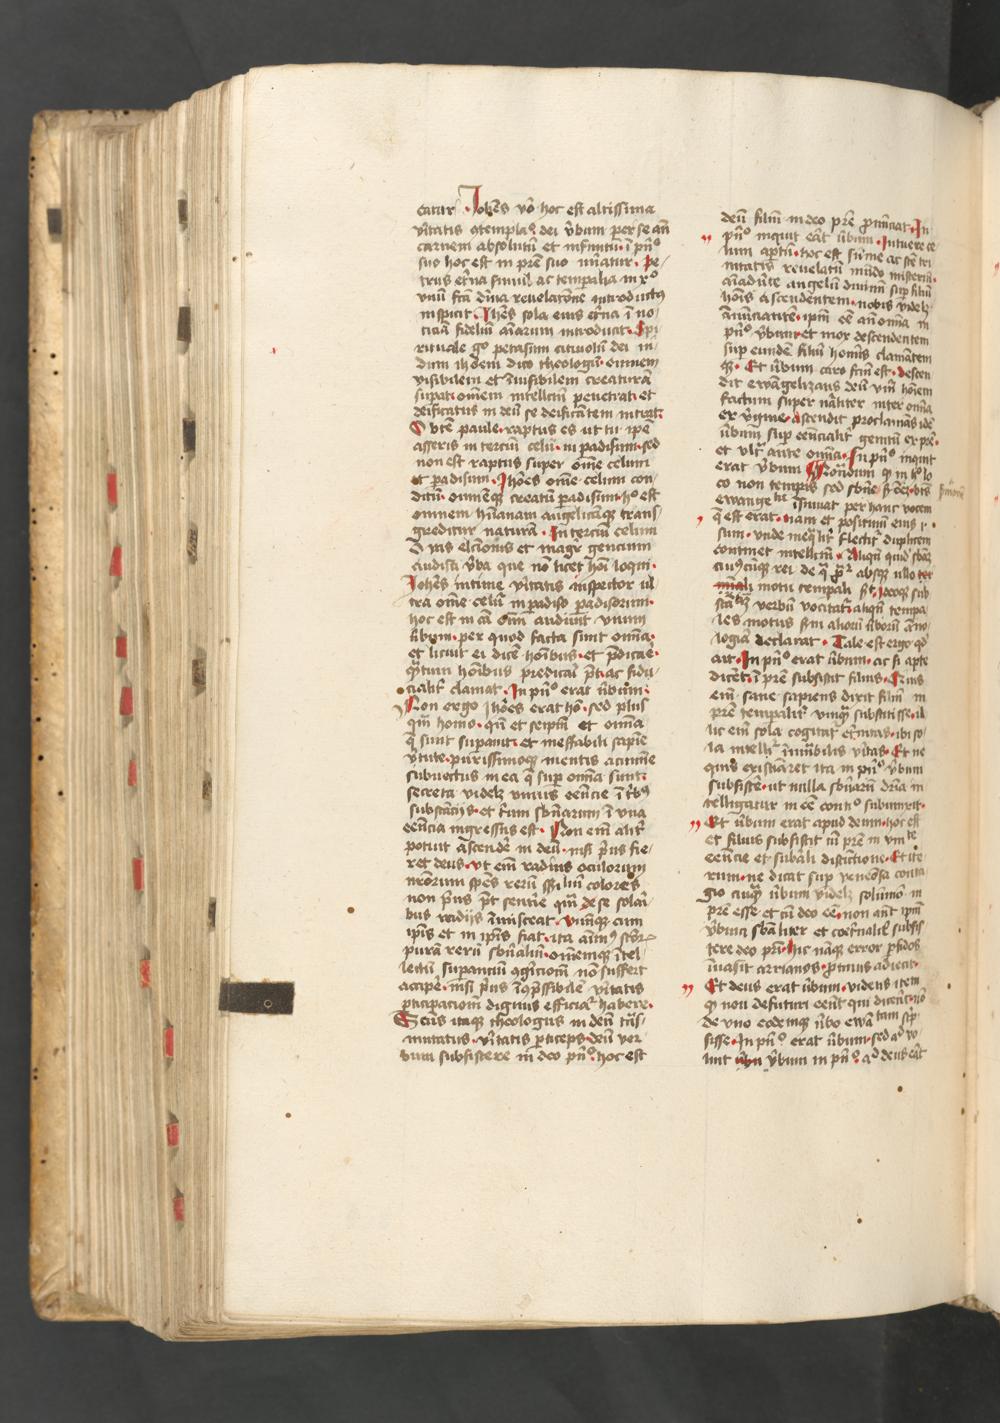 catur Johēs v̄o hoc est altissima
v̄itatis ꝯtemplař dei v̄bum per se an̄
carnem absolutū et infinitū ī pn̄º
suo hoc est in pr̄e suo intuatur Pe
trus et̄na simul ac temporalia in xº
vnū fc̄a diuīa reuelatōne introductꝰ
inspicit Jhēs sola eius et̄na ī no
ticiā fideliū aīarum introducit Spi
rituale gº petasum citiuolū dei in
dum ihōem dico theologū omnem
visibilem et īuisibilem creaturā
supat omēm intellectū penetrat et
deificatus in deū se deificātem intrat
O btē̄ paule raptus es ut tu ipē
asseris in terciū celū in padisum sed
non est raptus super om̄e celum
et padisum Jhōes om̄e celum con
ditū omnēqꝫ creatū padisum hº est
omnem hūanam angelicāqꝫ trans
greditur naturā In terciū celum
O vas elc̄ionis et magr̄ gencium
audisti v̄ba que nō licet hoī loqui
Johēs intime v̄itatis inspector ul
tra om̄e celū in padiso padisorum
hoc est in cā om̄i audiuit vnum
v̄bum per quod facta sunt om̄ia
et licuit ei dicē hoībus et p̄dicāē
qͣtum hoībus predicaī p̄t ac fidu
cialiť clamat In pn̄º erat v̄bum
Non ergo Jhōes erat hō sed plus
qͣm homo qn̄ et seipm̄ et omīa
q̄ sunt supauit et ineffabili sapiē
v̄tute purissimoqꝫ mentis acumine
subuectus in ea q̄ sup om̄ia sunt
secreta videlꝫ vnius eēncie ī tbꝰ
substācijs et tiū sbn̄arum ī vna
eēncia ingressus est Non em̄ aliť
potuit ascendē in deū nisi p̄us fie
ret deus vt em̄ radius oculorum
nr̄orum spēs rerū sensibiliū colores
non p̄us p̄t sentire qͣm de se solai
bus radijs īmisceat vnūqꝫ cum
ipīs et in ipīs fiat ita aīmꝰ scōꝝ
purā rerū sbn̄aliū omēmqꝫ ītel
lectū suparanciū ꝯgic̄iom̄ nō suffert
accipē nisi p̄us īcōprehēsibile v̄itatis
pticipaciom̄ dignus efficiaᷓ habere
Scūs itaqꝫ theologus in deū tn̄s
mutatus v̄itatis pticeps deū ver
bum subsistere in deo pn̄º hoc est
deū filiū in deo pr̄e pnūciat In
pn̄º inquit erāt v̄bum Intuere ce
lum aptū hoc est sūme ac scē tri
nitatis reuelatū mūdo misteriū
aīaduerte angelū diuinū sup filiū
hoīs ascendentem nobis videlꝫ
ānūnciantē ipm̄ eē an̄ om̄ia in
pn̄º v̄bum et mox descendentem
sup eundē filiū hominis clamātem
qꝫ Et v̄bum caro fcm̄ est descen
dit ewāgelizans deū v̄m hoīem
factum super nāliter inter om̄ia
ex v̄gine ascendit proclamās idē
v̄bum sup eēncialiť genitū ex pr̄e
et vltra ante om̄ia In pn̄º inquit
erat v̄bum Notandum qꝫ in hº lo
co non temporis sed sbn̄e
ewangelista īsinuat per hanc vocem
q̄ est erat nam et positiuū eius i
sum vnde ineq̄liť flectiť duplicem
continet intellcm̄ Aliqn̄ quid sbn̄e
cuiuscūqꝫ rei de q̄ p̄rᷓ absqꝫ ullo
motu tempali sit Ideoqꝫ sub
stātiuū verbū vocitaťᷓ aliqn̄ tempa
les motus sm̄ alioru v̄boru āno
logiā declarat Tale est ergo qd
ait In pn̄º erat v̄bum ac si apte
dicēt ī pr̄e subsistit filius Quis
em̄ sane sapiens dixit filiū in
pr̄e tempaliť vnqͣ substitisse il
lic em̄ sola cogitāt et̄nitas vbi so
la intelliᷓ īmutabilis v̄itas Et ne
quis existiāret ita in pn̄º v̄bum
subsistē ut nulla sbn̄arū dr̄ia in
telligatur in eē contiº subiunxit
Et v̄bum erat apud deum hoc est
et filius subsistit cū pr̄e in vnitate
eēncie et subāli distictione Et ite
rum ne dicat sup venēosa conta
gio cuiqͣ v̄bum videlꝫ solūmō in
pr̄e esse et cū deo eē non aūt ipm̄
v̄bum sbāliter et coet̄naliť subsis
tere deo pr̄i hic nāqꝫ error pfidos
īuasit arrianos ptinus adiecit
Et deus erat v̄bum videns item
qꝫ non defuturi eent qui dicerēt nō
de vno eodemqꝫ v̄bo ewāgelistam scp
sisse In pn̄º erat v̄bum sed aᵈ vo
luit v̄bum in pn̄º aᵈ deus erāt